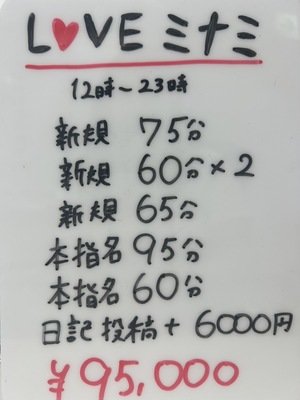 L♥VE ミナミ
12時～23時
新規 75分
新規 60分×2
新規 65分
本指名 95分
本指名 60分
日記投稿+6000円
¥95,000